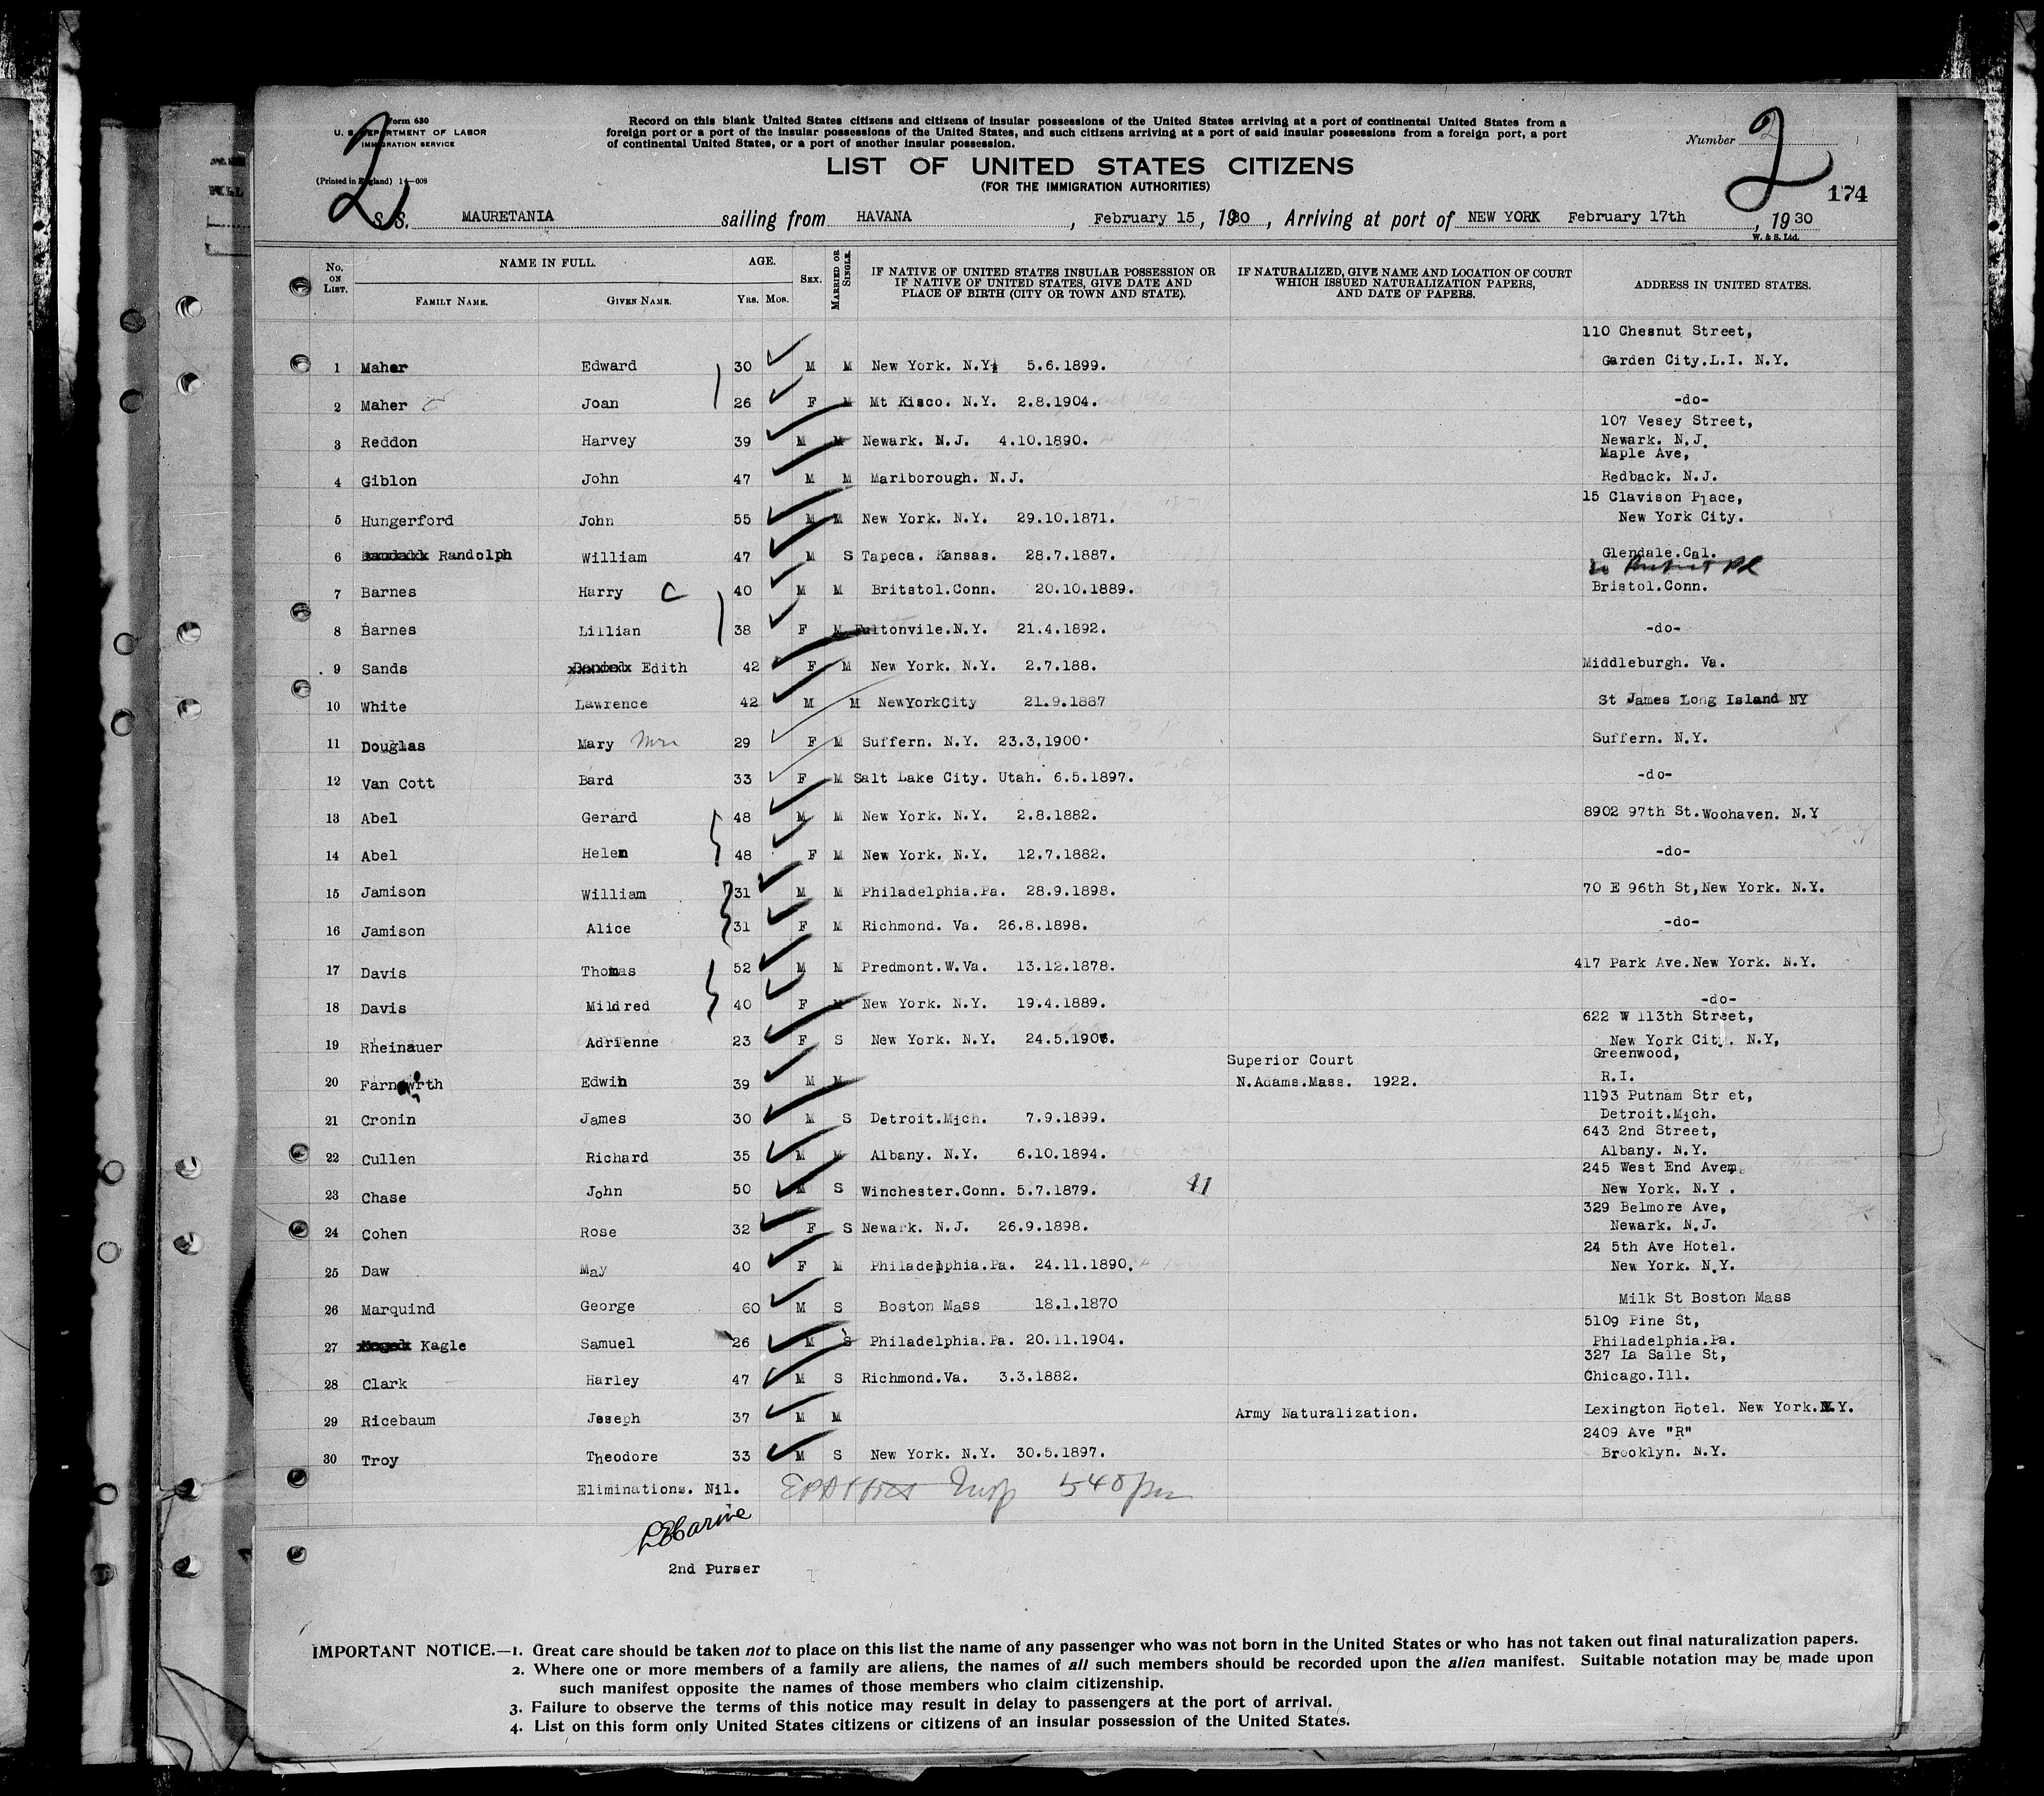 Form 630
U. S. DEPARTMENT OF LABOR
IMMIGRATION SERVICE
(Printed in England) 14—608
2
Record on this blank United States citizens and citizens of insular possessions of the United States arriving at a port of continental United States from a
foreign port or a port of the insular possessions of the United States, and such citizens arriving at a port of said insular possessions from a foreign port, a port
of continental United States, or a port of another insular possession.
LIST OF UNITED STATES CITIZENS
(FOR THE IMMIGRATION AUTHORITIES)
Number 2
2
174
S.S. MAURETANIA sailing from HAVANA, February 15, 1930, Arriving at port of NEW YORK February 17th, 1930
W. & S. Ltd.
No. ON LIST. NAME IN FULL. AGE. SEX. MARRIED OR SINGLE. IF NATIVE OF UNITED STATES INSULAR POSSESSION OR IF NATIVE OF UNITED STATES, GIVE DATE AND PLACE OF BIRTH (CITY OR TOWN AND STATE). IF NATURALIZED, GIVE NAME AND LOCATION OF COURT WHICH ISSUED NATURALIZATION PAPERS, AND DATE OF PAPERS. ADDRESS IN UNITED STATES.
FAMILY NAME. GIVEN NAME. YRS. MOS.
110 Chesnut Street,
1 Maher Edward 30 M M New York. N.Y. 5.6.1899. Garden City.L.I. N.Y.
2 Maher Joan 26 F M Mt Kisco. N.Y. 2.8.1904. -do-
107 Vesey Street,
3 Reddon Harvey 39 M M Newark. N.J. 4.10.1890. Newark. N.J.
Maple Ave,
4 Giblon John 47 M M Marlborough. N.J. Redback. N.J.
15 Clavison Place,
5 Hungerford John 55 M M New York. N.Y. 29.10.1871. New York City.
6 Randolph William 47 M S Tapeca. Kansas. 28.7.1887. Glendale.Cal.
7 Barnes Harry C 40 M M Britstol.Conn. 20.10.1889. Bristol.Conn.
8 Barnes Lillian 38 F M Fultonvile.N.Y. 21.4.1892. -do-
9 Sands Edith 42 F M New York. N.Y. 2.7.188. Middleburgh. Va.
10 White Lawrence 42 M M NewYorkCity 21.9.1887 St James Long Island NY
11 Douglas Mary Mrs 29 F M Suffern. N.Y. 23.3.1900. Suffern. N.Y.
12 Van Cott Bard 33 F M Salt Lake City. Utah. 6.5.1897. -do-
13 Abel Gerard 48 M M New York. N.Y. 2.8.1882. 8902 97th St.Woohaven. N.Y
14 Abel Helen 48 F M New York. N.Y. 12.7.1882. -do-
15 Jamison William 31 M M Philadelphia.Pa. 28.9.1898. 70 E 96th St,New York. N.Y.
16 Jamison Alice 31 F M Richmond. Va. 26.8.1898. -do-
17 Davis Thomas 52 M M Predmont.W.Va. 13.12.1878. 417 Park Ave.New York. N.Y.
18 Davis Mildred 40 F M New York. N.Y. 19.4.1889. -do-
622 W 113th Street,
19 Rheinauer Adrienne 23 F S New York. N.Y. 24.5.1906. New York City. N.Y,
Superior Court Greenwood,
20 Farnowrth Edwin 39 M M N.Adams.Mass. 1922. R.I.
1193 Putnam Str et,
21 Cronin James 30 M S Detroit.Mich. 7.9.1899. Detroit.Mich.
643 2nd Street,
22 Cullen Richard 35 M M Albany. N.Y. 6.10.1894. Albany. N.Y.
245 West End Ave,
23 Chase John 50 M S Winchester.Conn. 5.7.1879. 41 New York. N.Y .
329 Belmore Ave,
24 Cohen Rose 32 F S Newark. N.J. 26.9.1898. Newark. N.J.
24 5th Ave Hotel.
25 Daw May 40 F M Philadelphia.Pa. 24.11.1890. New York. N.Y.
26 Marquind George 60 M S Boston Mass 18.1.1870 Milk St Boston Mass
5109 Pine St,
27 Kagle Samuel 26 M S Philadelphia.Pa. 20.11.1904. Philadelphia.Pa.
327 La Salle St,
28 Clark Harley 47 M S Richmond.Va. 3.3.1882. Chicago.Ill.
29 Ricebaum Joseph 37 M M Army Naturalization. Lexington Hotel. New York.N.Y.
2409 Ave "R"
30 Troy Theodore 33 M S New York. N.Y. 30.5.1897. Brooklyn. N.Y.
Eliminations. Nil. Insp 540 pm
2nd Purser
IMPORTANT NOTICE.—1. Great care should be taken not to place on this list the name of any passenger who was not born in the United States or who has not taken out final naturalization papers.
2. Where one or more members of a family are aliens, the names of all such members should be recorded upon the alien manifest. Suitable notation may be made upon
such manifest opposite the names of those members who claim citizenship.
3. Failure to observe the terms of this notice may result in delay to passengers at the port of arrival.
4. List on this form only United States citizens or citizens of an insular possession of the United States.